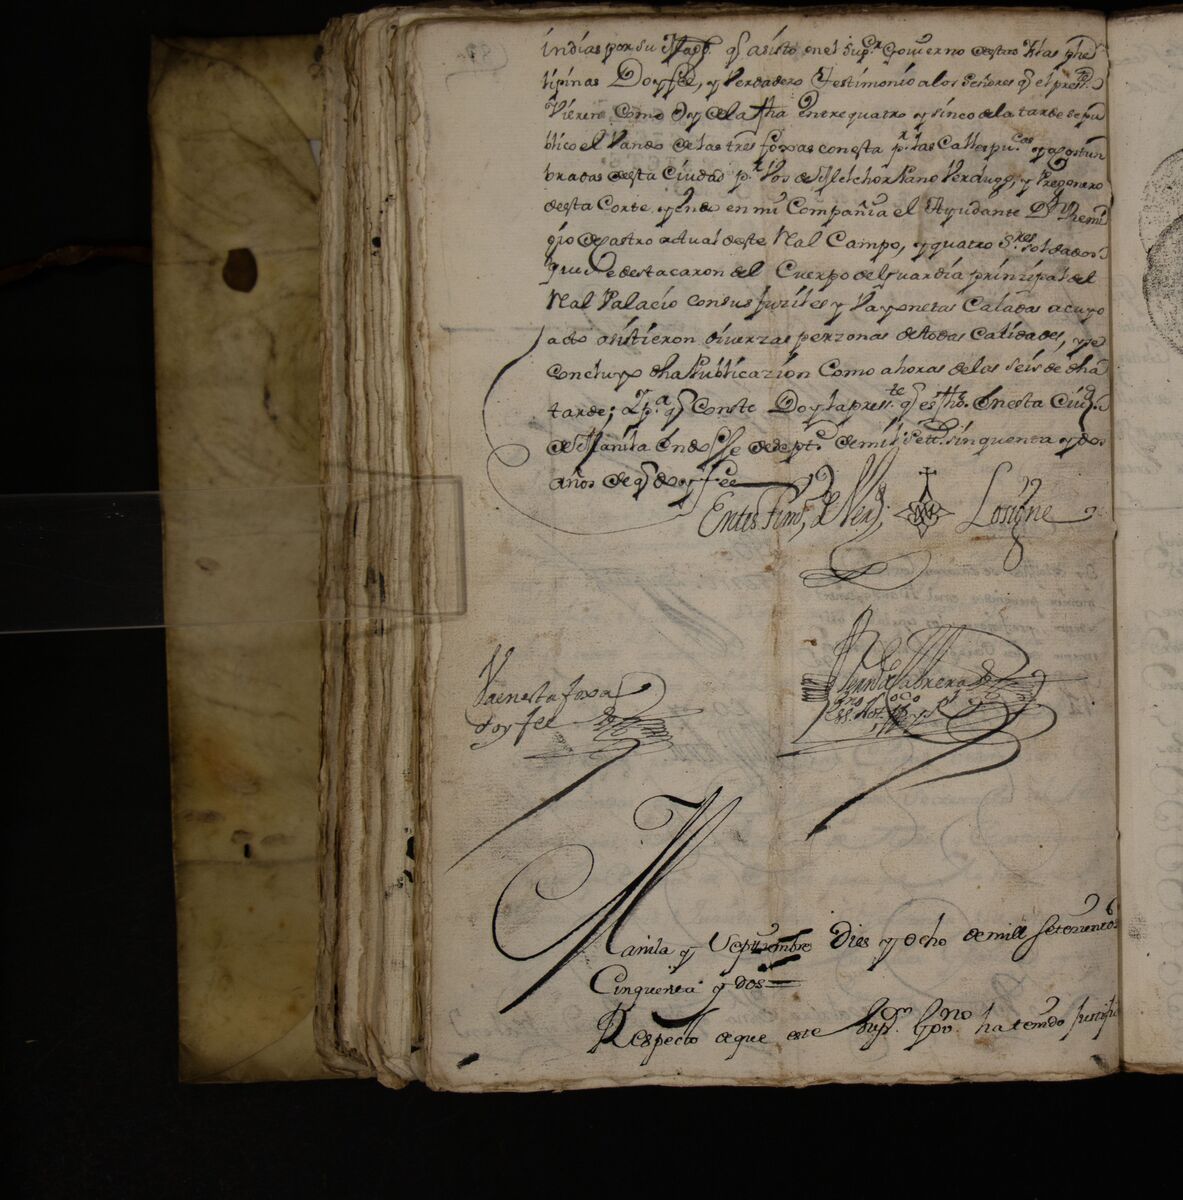 indias por su Magd. q̃ asisto en el Supor. Gouierno destas Yslas phe
lipinas Doy feé, y Verdadero Testimonio a los Señores q̃ el presste.
Vieren Como oy dela fha entre quatro y sinco de la tarde se pu
blico el Vando de las tres foxas con esta pr. las Calles pu.cas y acostun
bradas de esta Ciudad pr. Vos de Melchor Verdugo, y Pregonero
de esta Corte yendo en mi Compañia el Ayudante Dn. Remi
gio de Castro actual de este Rl Campo, y quatro Sres. soldados
que Se destacaron del Cuerpo de guardia prinzipal del
Rl Palacio con sus fuziles y Vayonetas Caladas a cuyo
acto asistieron diuerzas perzonas de todas Calidades, y se
concluyo dha Publicazion Como a horas de las Seis de dha
tarde; Y pa. q̃ Conste Doy la presste. q̃ es fha. En esta Ciud.
de Manila en dose de Septe. de mil Sett. sinquenta y dos
años de q̃ doy feé
En testimo, de Verd. Lo signe
Va en esta foxa
doy feé
Manila y Septiembre Dies y ocho de mill Setecientos
Cinquenta y dos
Respecto a que este Supor. Govno. haciendo Justifi